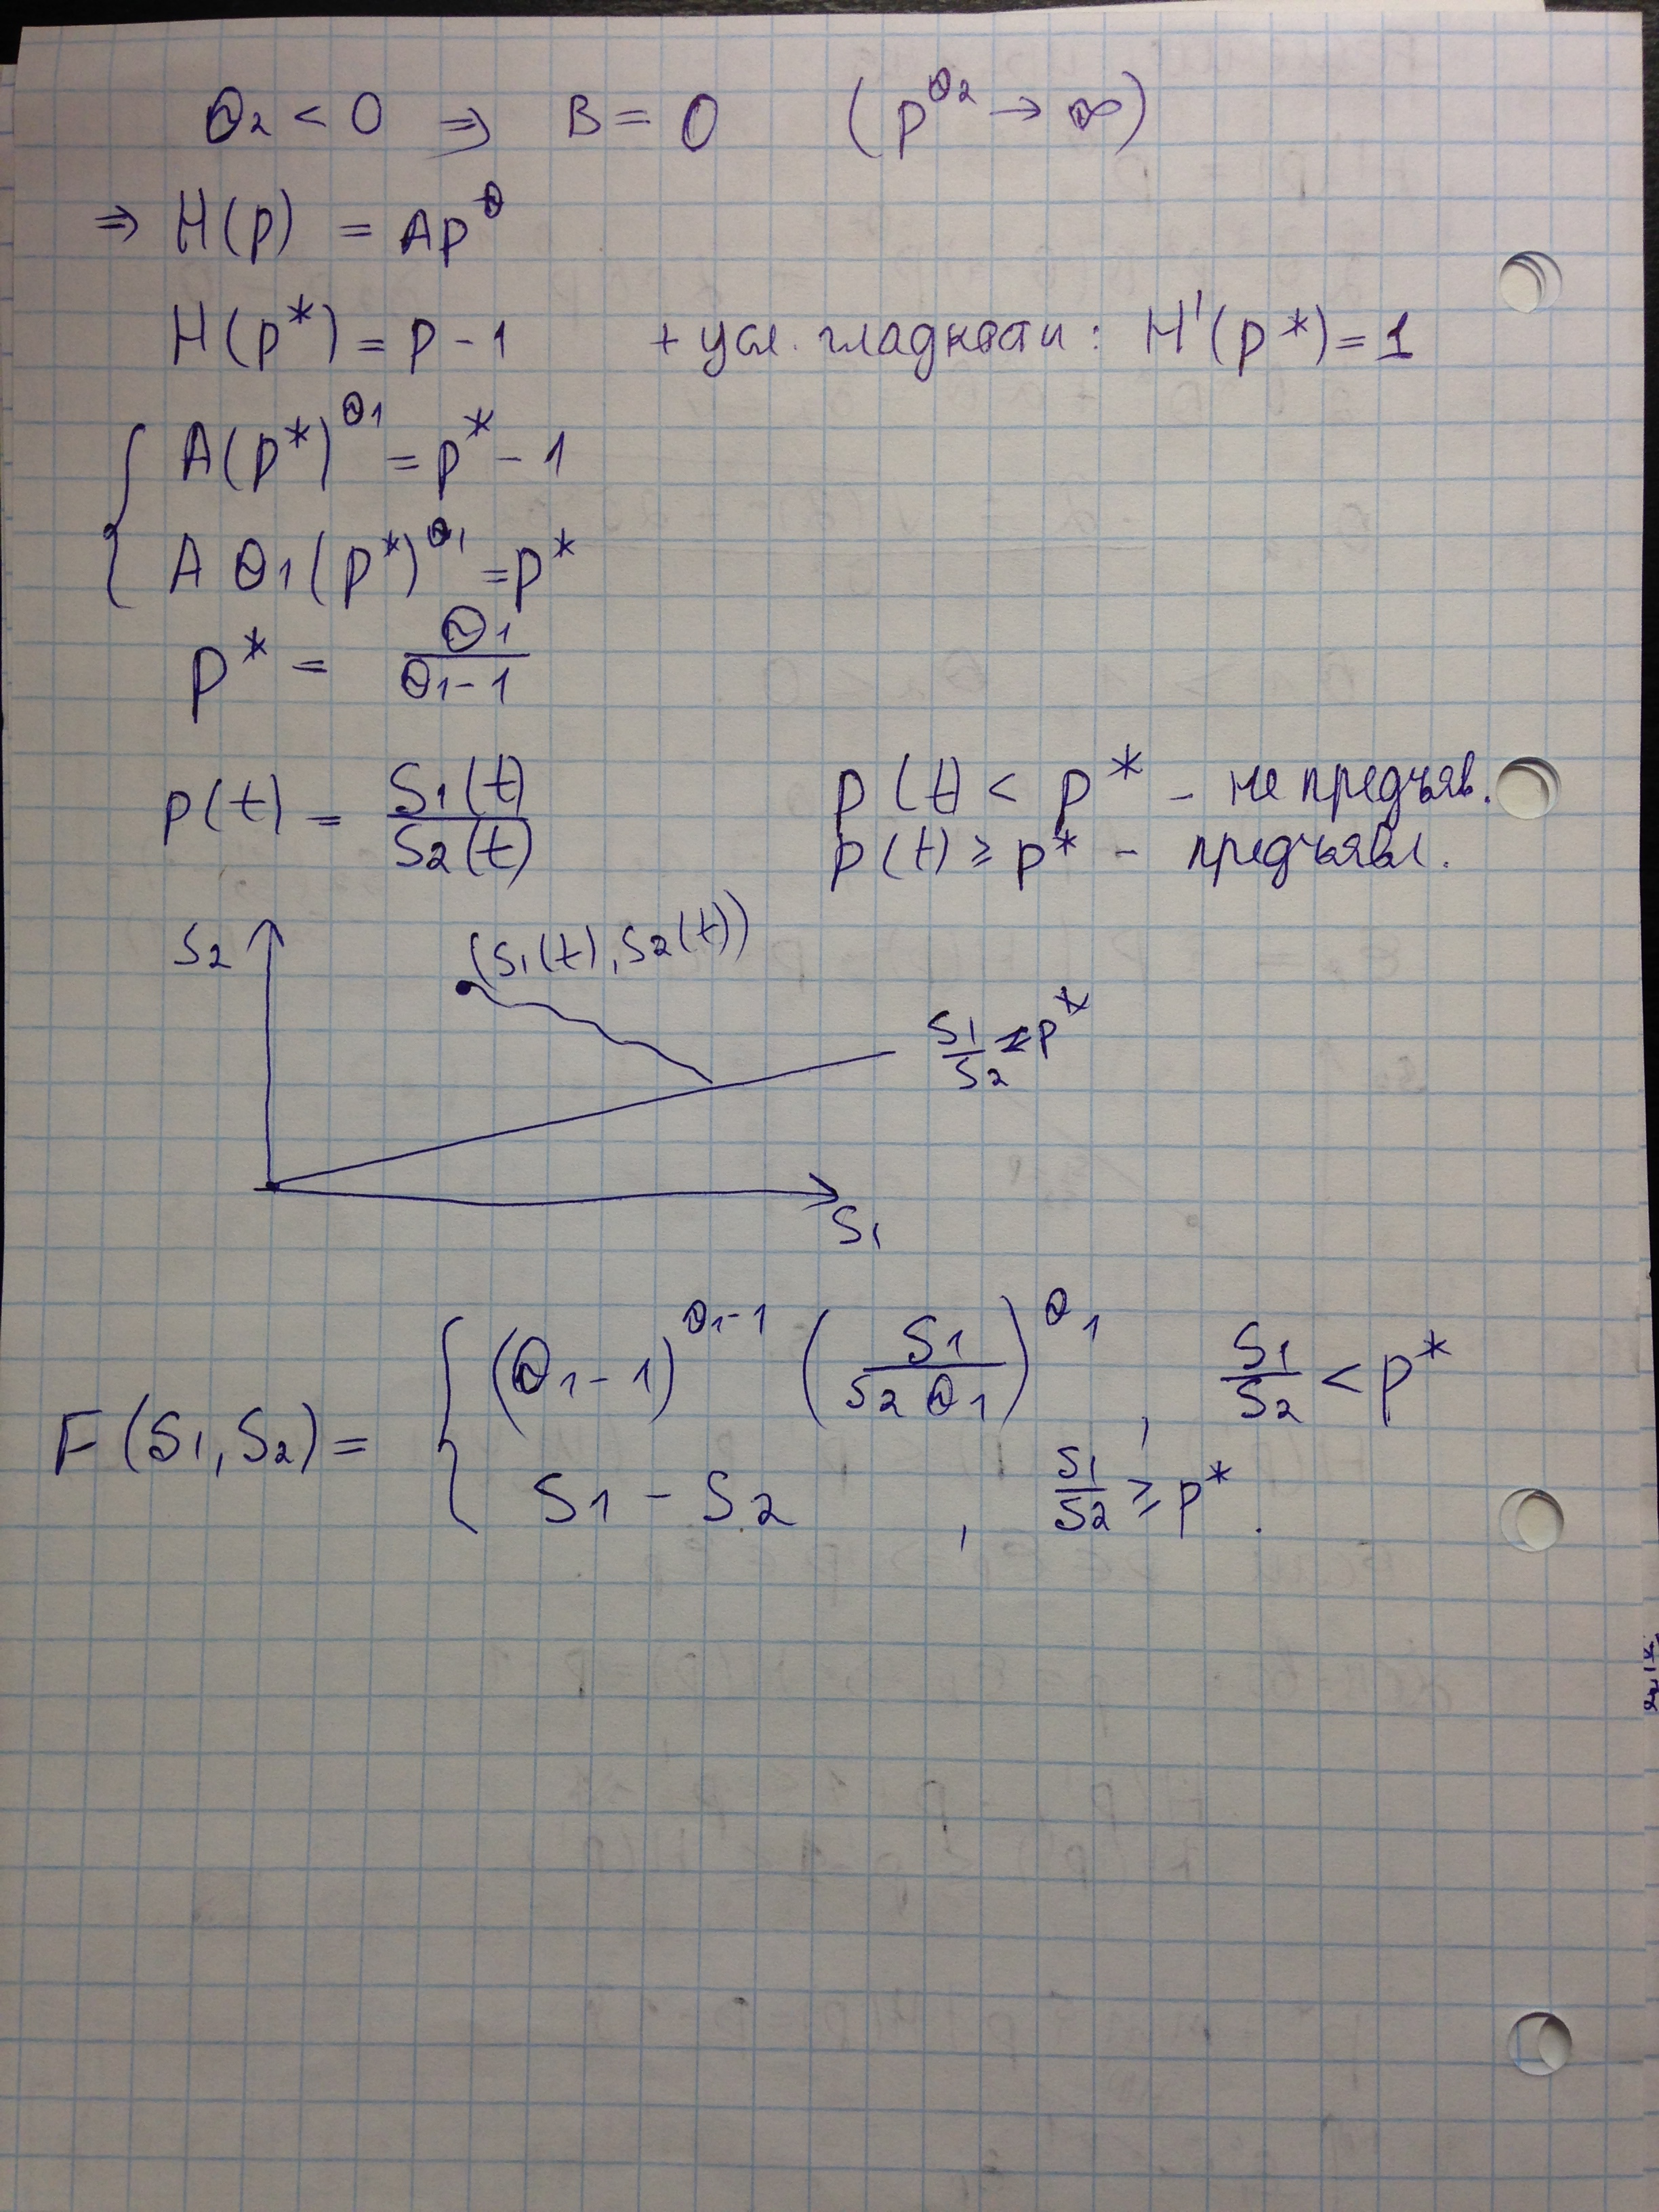 θ₂ < 0 ⇒ B = 0 (p^θ₂ → ∞)
⇒ H(p) = Ap^θ
H(p*) = p - 1 + усл. гладкости: H'(p*) = 1
{ A(p*)^θ₁ = p* - 1
A θ₁(p*)^θ₁ = p*
p* = θ₁ / (θ₁ - 1)
p(t) = S₁(t) / S₂(t)
p(t) < p* - не предъяв.
p(t) ≥ p* - предъявл.
S₂
(S₁(t), S₂(t))
S₁/S₂ = p*
S₁
F(S₁, S₂) = { (θ₁ - 1)^(θ₁-1) (S₁ / (S₂ θ₁))^θ₁ , S₁/S₂ < p*
S₁ - S₂ , S₁/S₂ ≥ p* .